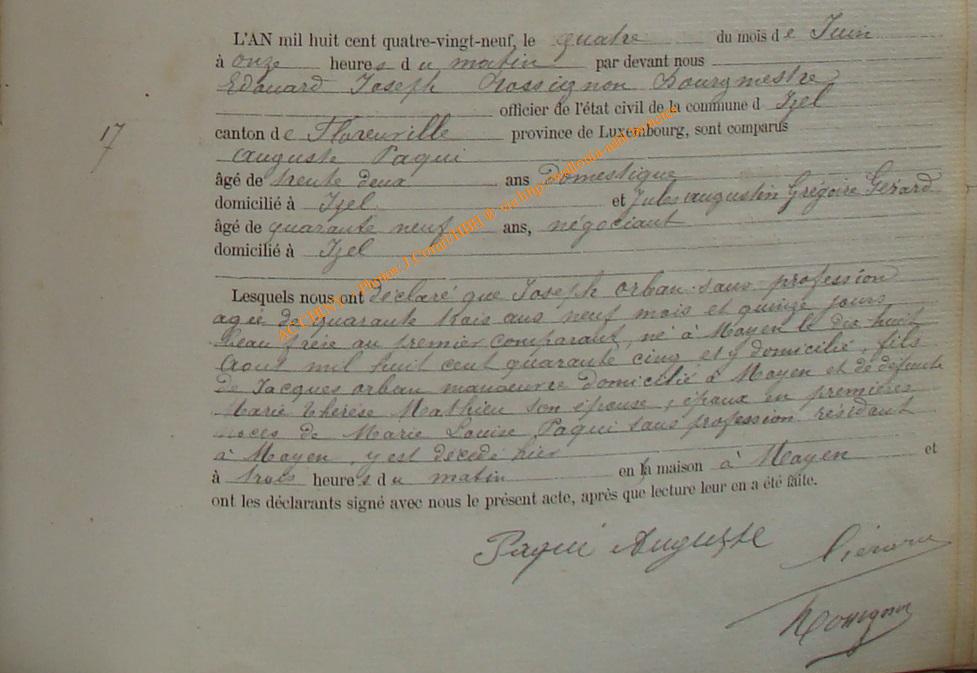 L'AN mil huit cent quatre-vingt-neuf, le quatre du mois de Juin
à onze heures du matin par devant nous
Edouard Joseph Rossignon Bourgmestre
officier de l'état civil de la commune d Izel
17
canton de Florenville province de Luxembourg, sont comparus
Auguste Paqui
âgé de trente deux ans Domestique
domicilié à Izel et Jules Augustin Grégoire Gérard
âgé de quarante neuf ans, négociant
domicilié à Izel
Lesquels nous ont déclaré que Joseph Orban sans profession
agé de quarante trois ans neuf mois et quinze jours
beau frère au premier comparant, né à Moyen le dix huit
Aout mil huit cent quarante cinq et y domicilié, fils
de Jacques Orban manoeuvre domicilié à Moyen et de défunte
Marie Thérèse Mathieu son épouse, époux en premières
noces de Marie Louise Paqui sans profession résidant
à Moyen, y est décédé hier
à trois heures du matin en la maison à Moyen et
ont les déclarants signé avec nous le présent acte, après que lecture leur en a été faite.
Paqui Auguste Gérard
Rossignon